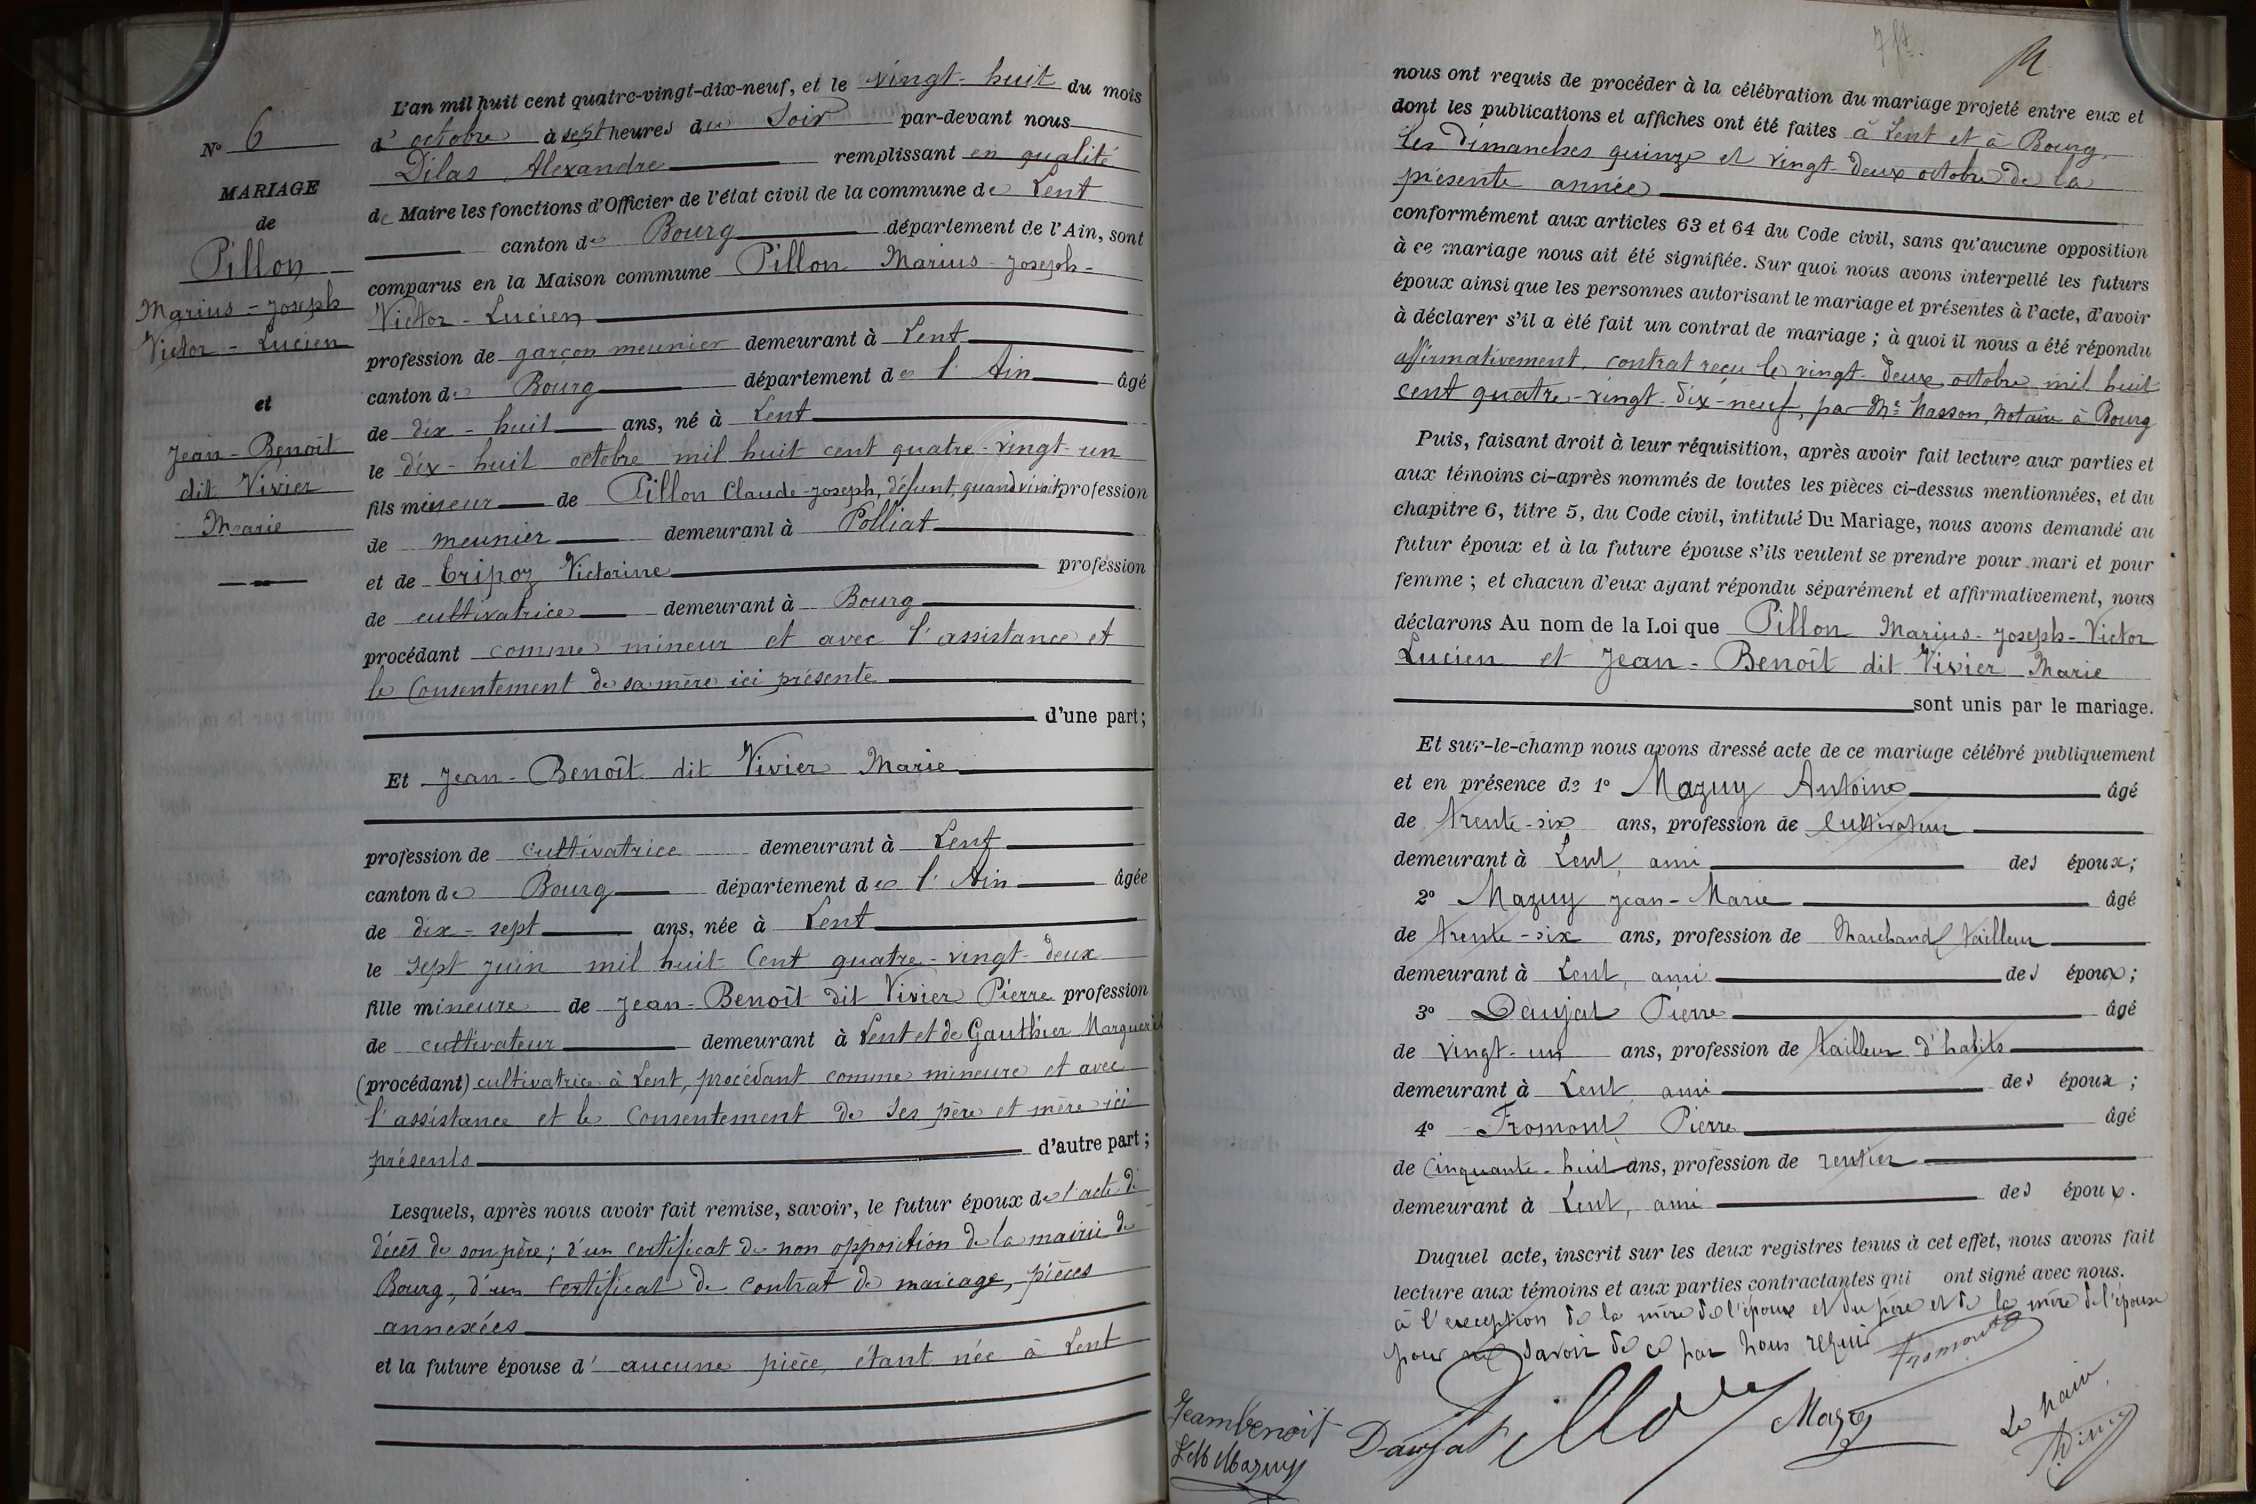 L'an mil huit cent quatre-vingt-dix-neuf, et le vingt-huit du mois
d'octobre à sept heures du Soir par-devant nous
Dilas Alexandre remplissant en qualité
de Maire les fonctions d'Officier de l'état civil de la commune de Lent
canton de Bourg département de l'Ain, sont
comparus en la Maison commune Pillon Marius-Joseph-
Victor-Lucien
profession de garçon meunier demeurant à Lent
canton de Bourg département de l'Ain âgé
de dix-huit ans, né à Lent
le dix-huit octobre mil huit cent quatre-vingt-un
fils mineur de Pillon Claude-Joseph, défunt, quand vivait profession
de meunier demeurant à Polliat
et de Tripoz Victorine profession
de cultivatrice demeurant à Bourg
procédant comme mineur et avec l'assistance et
le Consentement de sa mère ici présente
d'une part;
Et Jean-Benoît dit Vivier Marie
profession de cultivatrice demeurant à Lent
canton de Bourg département de l'Ain âgée
de dix-sept ans, née à Lent
le sept juin mil huit Cent quatre-vingt-deux
fille mineure de Jean-Benoît dit Vivier Pierre profession
de cultivateur demeurant à Lent et de Gauthier Marguerit
(procédant) cultivatrice à Lent, procédant comme mineure et avec
l'assistance et le Consentement de ses père et mère ici
présents d'autre part;
Lesquels, après nous avoir fait remise, savoir, le futur époux de l'acte de
décès de son père; d'un certificat de non opposition de la mairie de
Bourg, d'un certificat de contrat de mariage, pièces
annexées
et la future épouse d'aucune pièce, étant née à Lent
N° 6
MARIAGE
de
Pillon
Marius-Joseph
Victor-Lucien
et
Jean-Benoît
dit Vivier
Marie
nous ont requis de procéder à la célébration du mariage projeté entre eux et
dont les publications et affiches ont été faites à Lent et à Bourg,
les dimanches quinze et vingt-deux octobre de la
présente année
conformément aux articles 63 et 64 du Code civil, sans qu'aucune opposition
à ce mariage nous ait été signifiée. Sur quoi nous avons interpellé les futurs
époux ainsi que les personnes autorisant le mariage et présentes à l'acte, d'avoir
à déclarer s'il a été fait un contrat de mariage; à quoi il nous a été répondu
affirmativement, contrat reçu le vingt-deux octobre mil huit
cent quatre-vingt-dix-neuf, par Me Nasson, Notaire à Bourg
Puis, faisant droit à leur réquisition, après avoir fait lecture aux parties et
aux témoins ci-après nommés de toutes les pièces ci-dessus mentionnées, et du
chapitre 6, titre 5, du Code civil, intitulé Du Mariage, nous avons demandé au
futur époux et à la future épouse s'ils veulent se prendre pour mari et pour
femme; et chacun d'eux ayant répondu séparément et affirmativement, nous
déclarons Au nom de la Loi que Pillon Marius-Joseph-Victor
Lucien et Jean-Benoît dit Vivier Marie
sont unis par le mariage.
Et sur-le-champ nous avons dressé acte de ce mariage célébré publiquement
et en présence de 1° Mazuy Antoine âgé
de trente-six ans, profession de Cultivateur
demeurant à Lent, ami des époux;
2° Mazuy Jean-Marie âgé
de trente-six ans, profession de Marchand tailleur
demeurant à Lent, ami des époux;
3° Daujat Pierre âgé
de vingt-un ans, profession de tailleur d'habits
demeurant à Lent, ami des époux;
4° Fromont Pierre âgé
de Cinquante-huit ans, profession de rentier
demeurant à Lent, ami des époux.
Duquel acte, inscrit sur les deux registres tenus à cet effet, nous avons fait
lecture aux témoins et aux parties contractantes qui ont signé avec nous.
à l'exception de la mère de l'époux et du père et de la mère de l'épouse
pour ne savoir de ce par nous requis
Fromont
Jeanbenoit
Daujat
Pillon
Mazuy
Le Maire,
J M Mazuy
Dilas